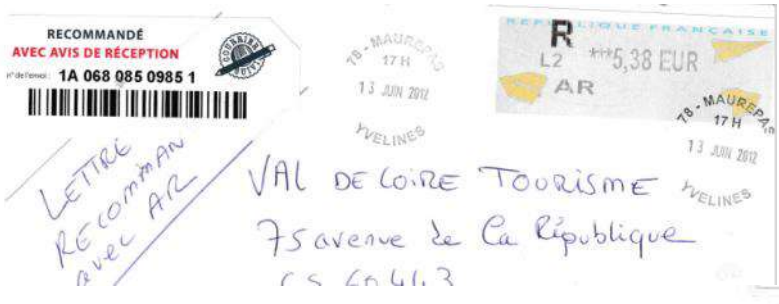 RECOMMANDÉ
AVEC AVIS DE RÉCEPTION
n° de l'envoi : 1A 068 085 0985 1
COURRIER
78 - MAUREPAS
17 H
13 JUIN 2012
YVELINES
REPUBLIQUE FRANCAISE
R
L2 ***5,38 EUR
AR
78 - MAUREPAS
17 H
13 JUIN 2012
YVELINES
LETTRE
RECOMMAN
avec AR
VAL DE LOIRE TOURISME
75 avenue de la République
CS 60443